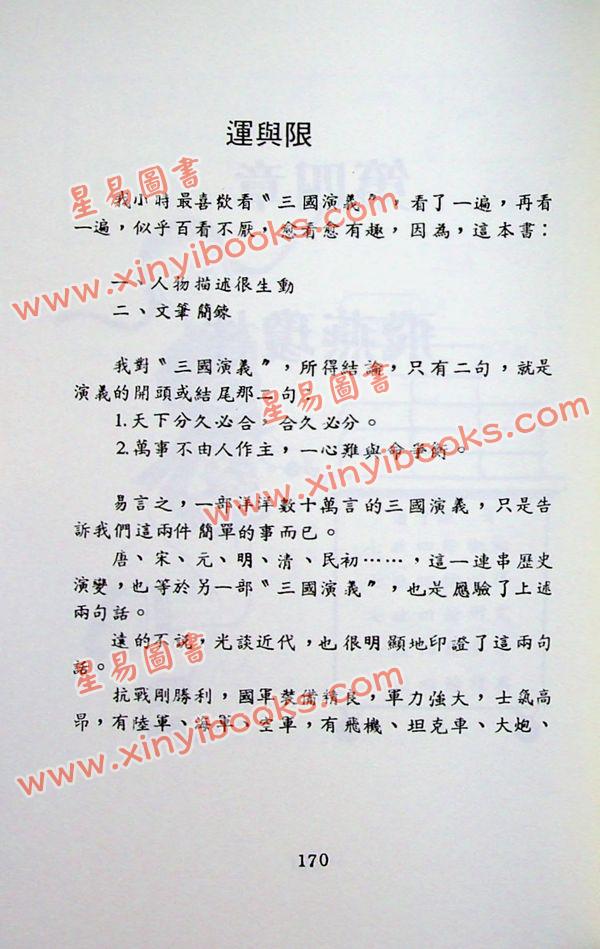 運與限
我小時最喜歡看〝三國演義〞，看了一遍，再看
一遍，似乎百看不厭，愈看愈有趣，因為，這本書：
一、人物描述很生動
二、文筆簡鍊
我對〝三國演義〞，所得結論，只有二句，就是
演義的開頭或結尾那二句：
1.天下分久必合，合久必分。
2.萬事不由人作主，一心難與命爭衡。
易言之，一部洋洋數十萬言的三國演義，只是告
訴我們這兩件簡單的事而已。
唐、宋、元、明、清、民初……，這一連串歷史
演變，也等於另一部〝三國演義〞，也是應驗了上述
兩句話。
遠的不說，光談近代，也很明顯地印證了這兩句
話。
抗戰剛勝利，國軍裝備精良，軍力強大，士氣高
昂，有陸軍、海軍、空軍，有飛機、坦克車、大炮、
170
星易圖書
www.xinyibooks.com
星易圖書
www.xinyibooks.com
星易圖書
www.xinyibooks.com